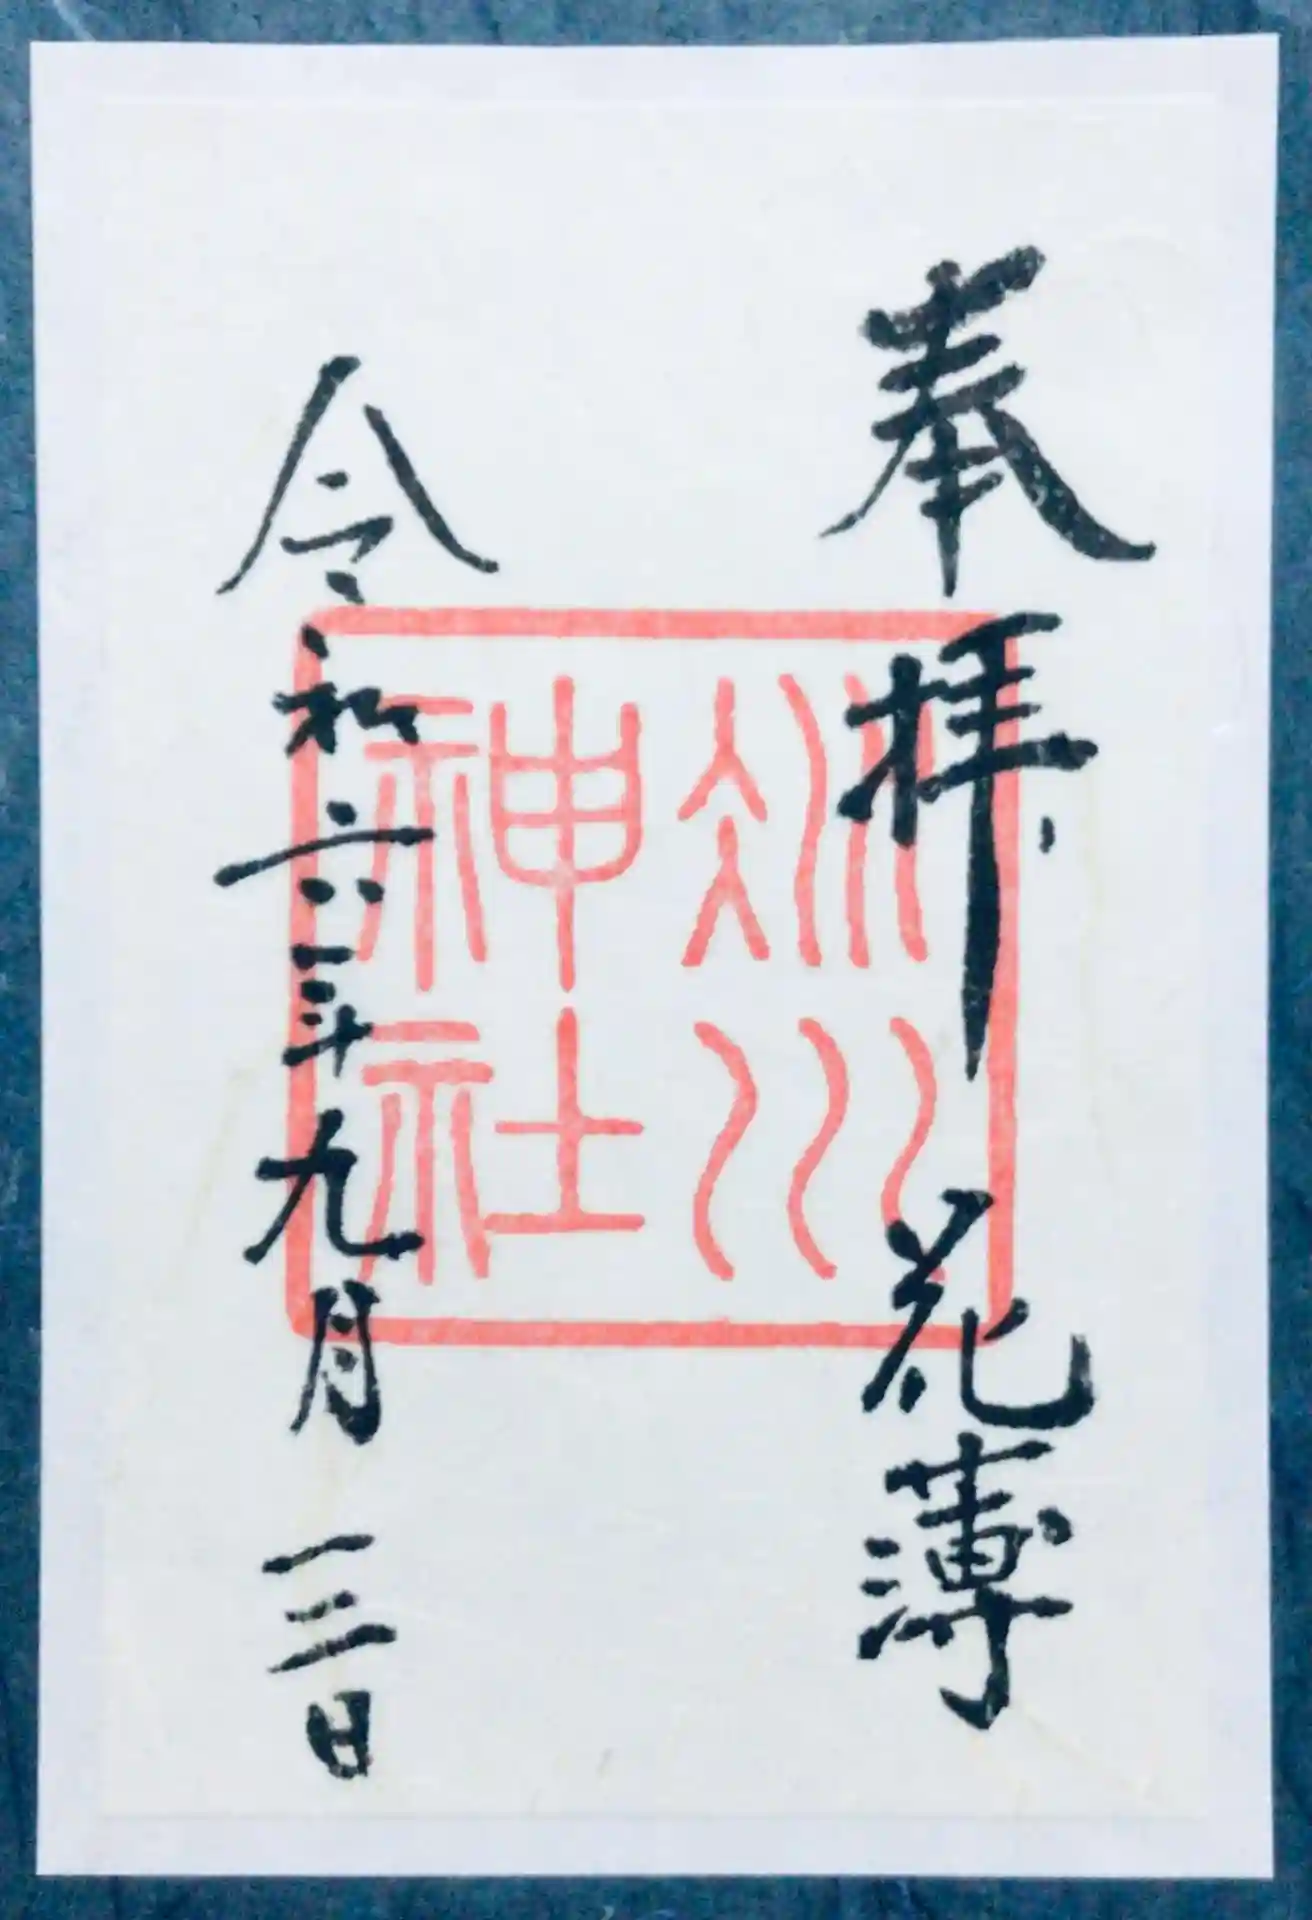 奉拝 花薄
冰川
神社
令和六年九月三日